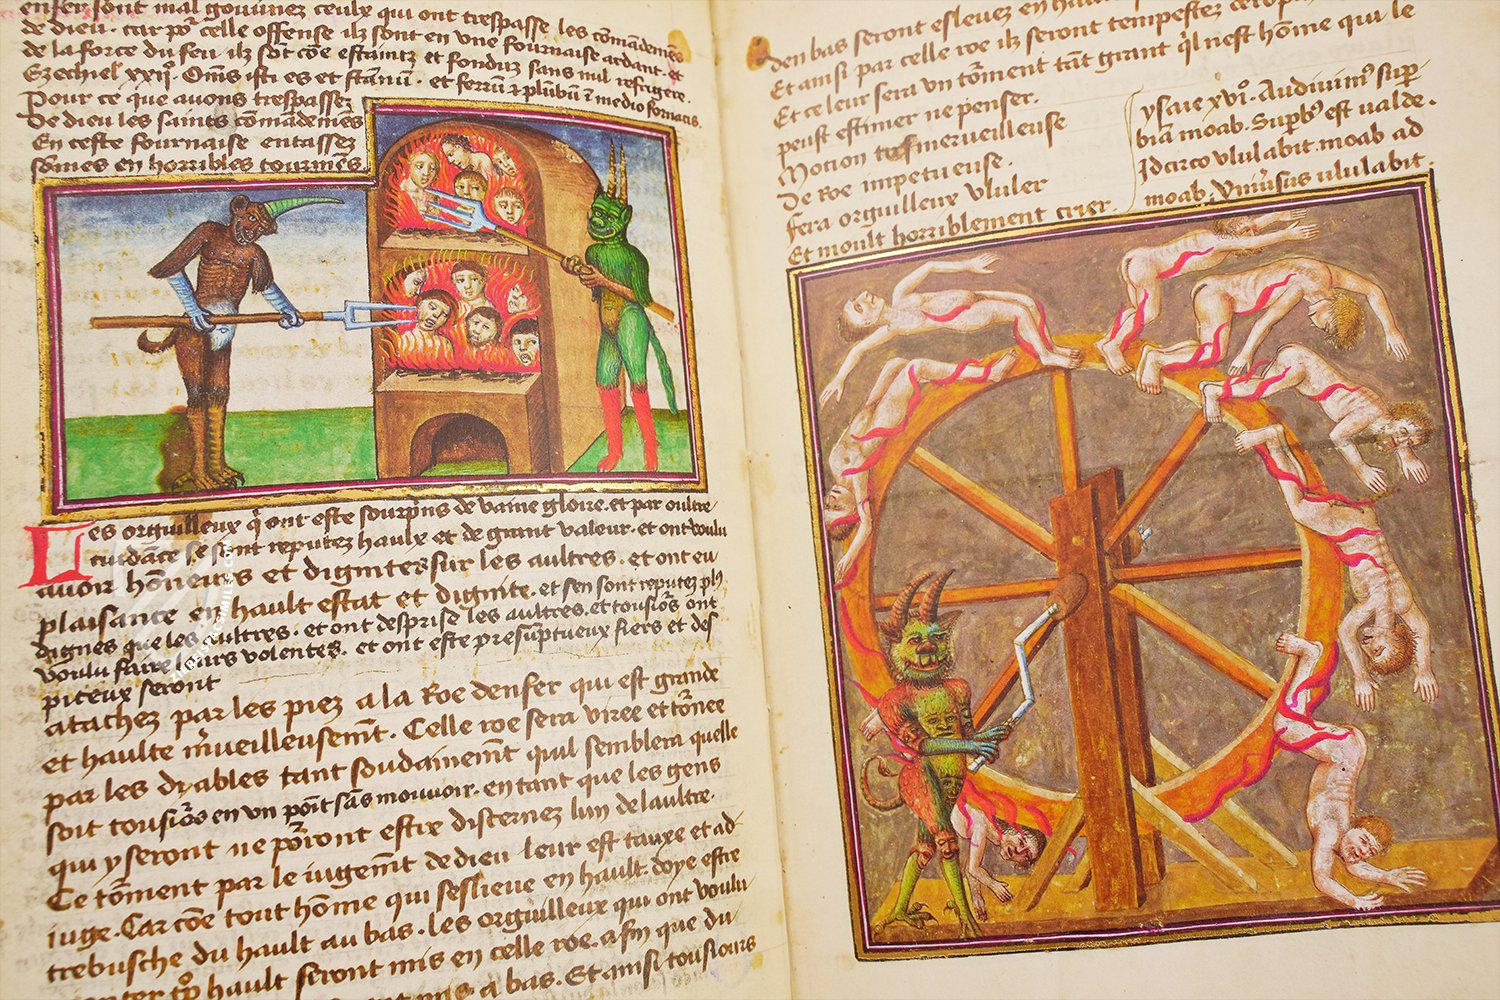 enfer sont mal gouuinez ceulx qui ont trespasse les cōmādemēs
de dieu. car po' celle offense ilz sont en vne fournaise ardant. et
de la force du feu ilz sōt cōe estaintz et fonduz sans nul refrigere.
Ezechiel xxii°. Om̄s isti es et stānū. et ferrū et plūbū ī medio fornacis.
Pour ce que auons trespassez
De dieu les saints cōmādemēs
En ceste fournaise entassez
sōmes en horribles tourmēs.
Les orguilleux q̄ ont este sourpris de vaine gloire. et par oultre
cuidāce se sont reputez haulx et de grant valeur. et ont voulu
auoir hōneurs et dignites sur les aultres. et ont eu
plaisance en hault estat et dignite. et sen sont reputez pl9
dignes que les aultres. et ont desprise les aultres. et tousiōs ont
voulu faire leurs volentes. et ont este presūptueux fiers et des
piteux seront
atachez par les piez a la Roe denfer qui est grande
et haulte m̄ueilleusemēt. Celle roe sera viree et tōnee
par les dyables tant soudainemēt quil semblera quelle
soit tousiōs en vn poīt sās mouuoir. en tant que les gens
qui y seront ne pōront estre discernez lun de laultre.
Ce tōment par le iugemēt de dieu leur est tauxe et ad
iuge. Car cōe tout hōme qui seslieue en hault. doye estre
trebusche du hault au bas. les orguilleux qui ont voulu
hault seront mis en celle roe. afin que du
mis a bas. Et ainsi tousiours
den bas seront esleuez en hau
Et ainsi par celle roe ilz seront tempestez
Et ce leur sera vn tōment tāt grant q̄l nest hōme qui le
peust estimer ne penser.
Motion tres merueilleuse
De Roe impetueuse.
fera orguilleux vluler
Et moult horriblement crier.
ysaie xvi°. Audiuim9 sup
biam moab. Supb9 est valde.
Idcirco vlulabit moab ad
moab. vniūsus ululabit.